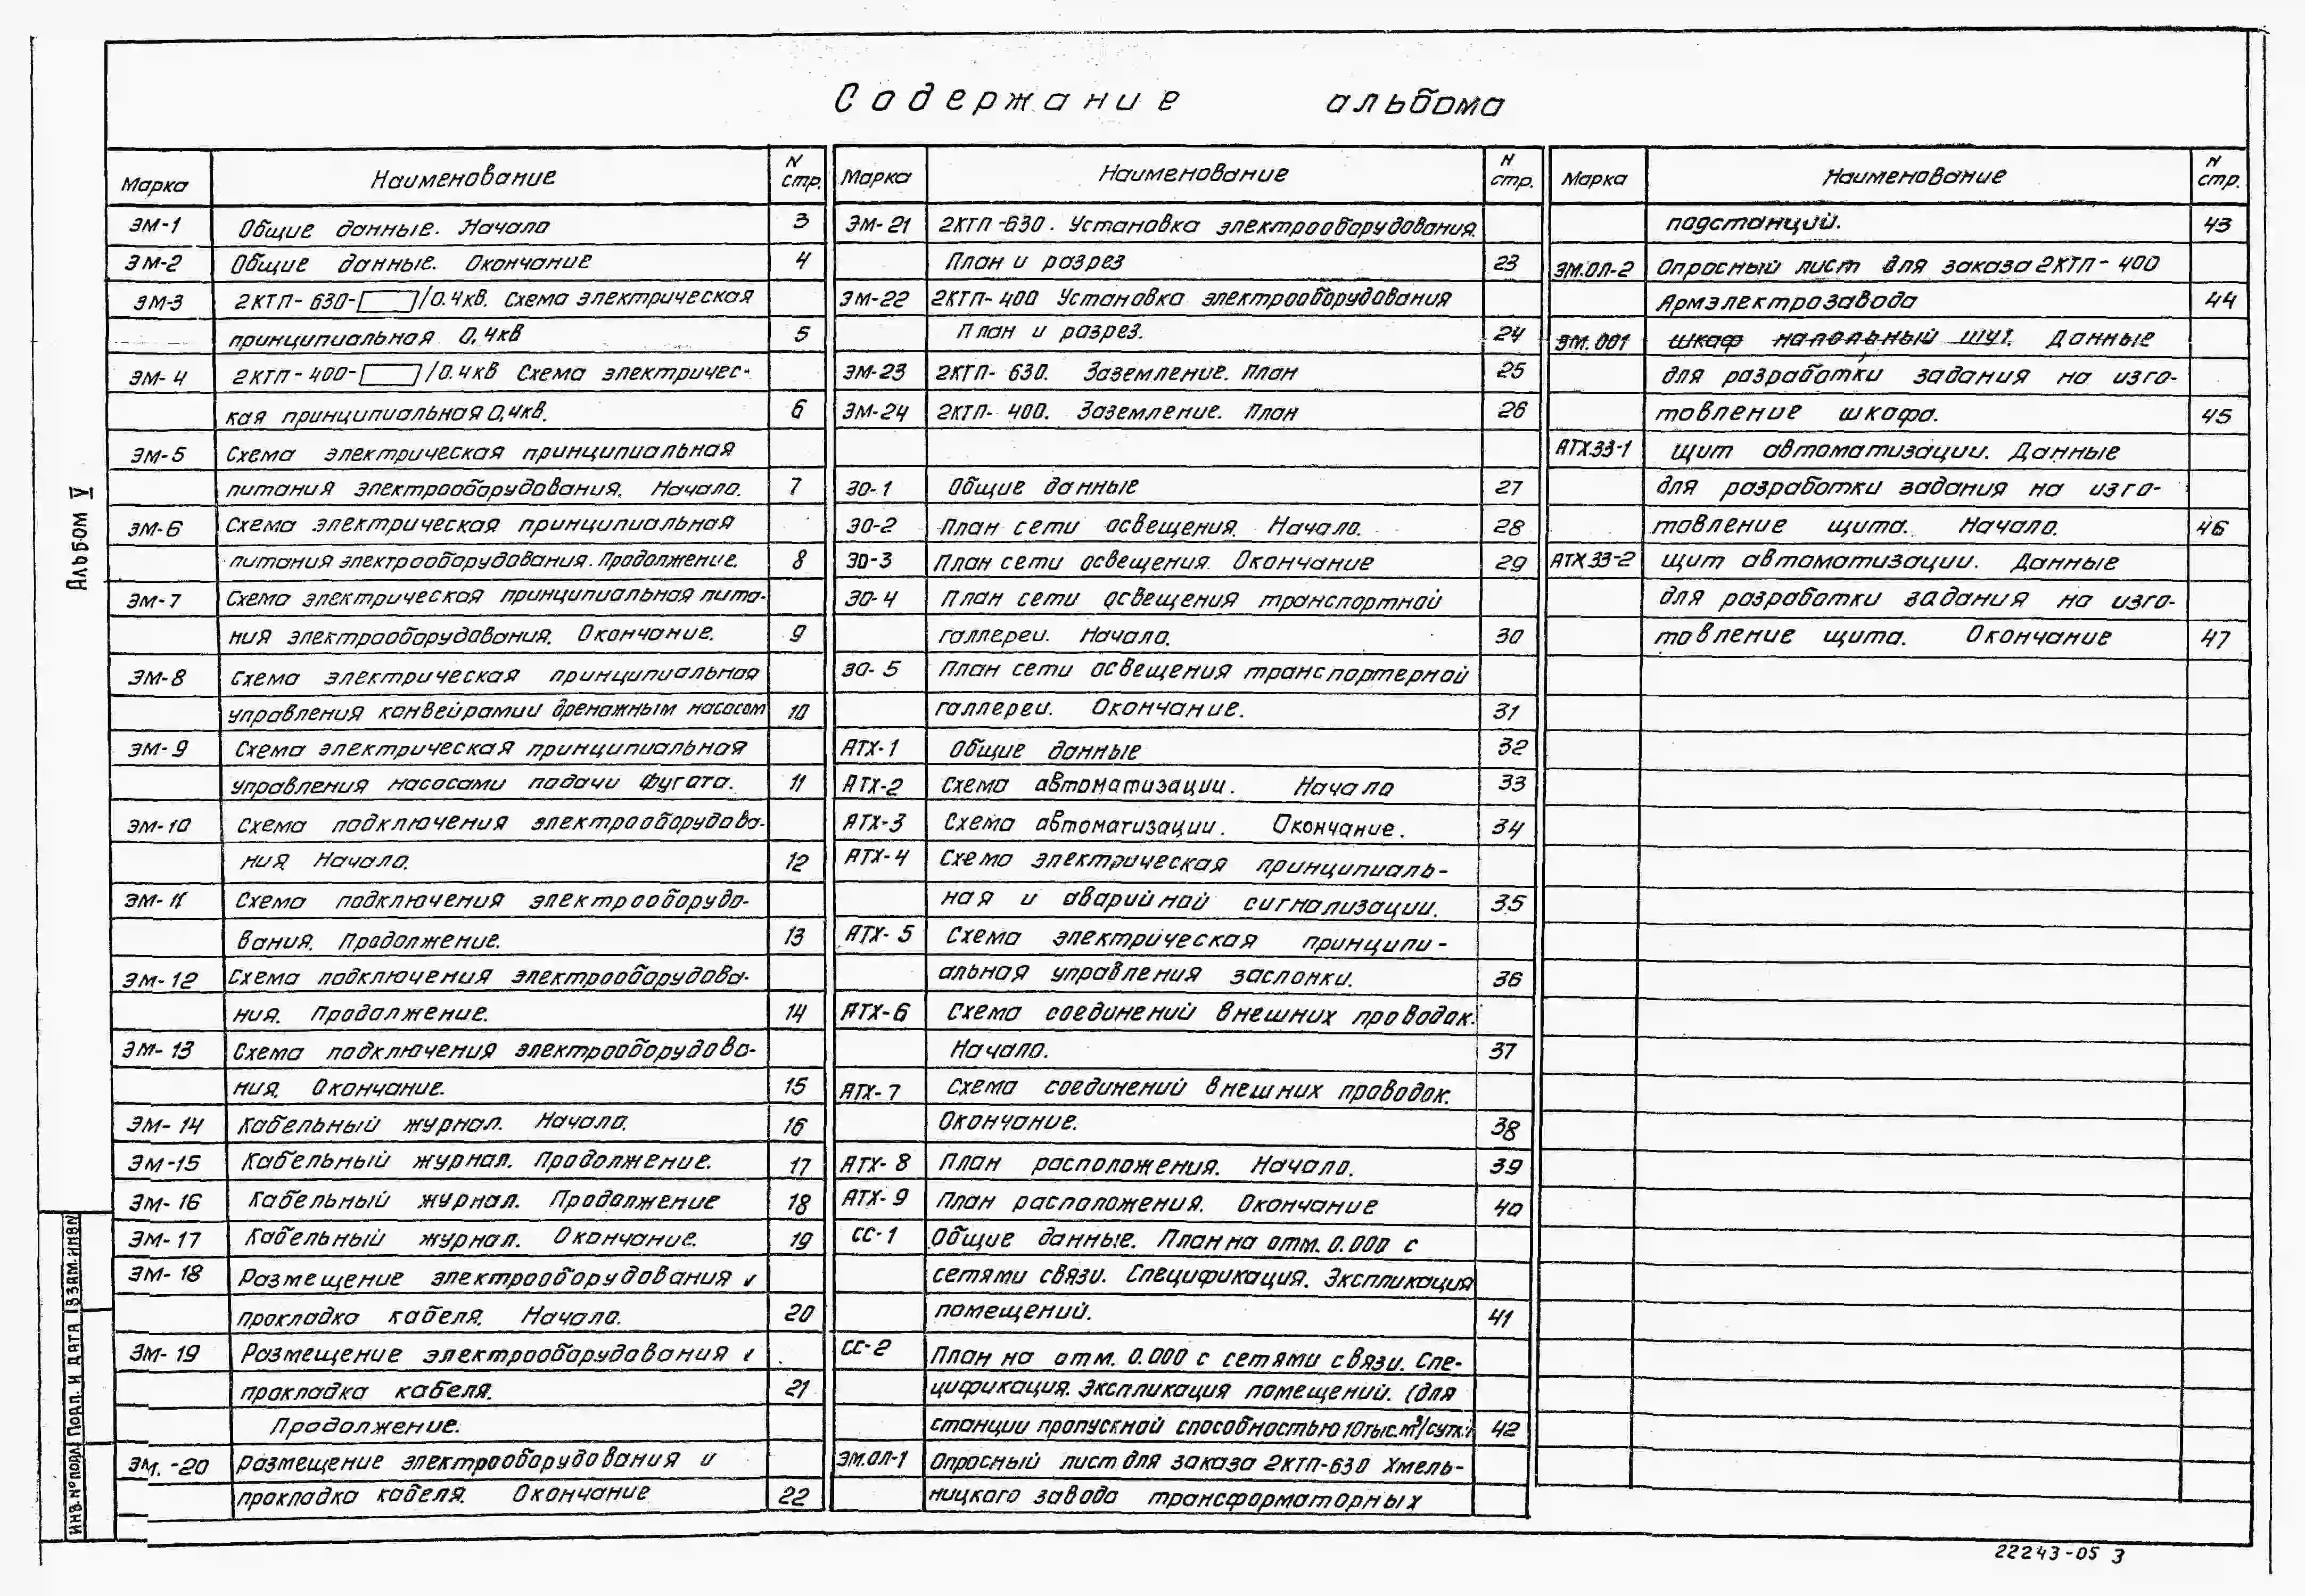 Содержание альбома
Марка Наименование N стр.
ЭМ-1 Общие данные. Начало 3
ЭМ-2 Общие данные. Окончание 4
ЭМ-3 2КТП-630-[ ]/0.4кв. Схема электрическая
принципиальная 0,4кв 5
ЭМ-4 2КТП-400-[ ]/0.4кв Схема электричес-
кая принципиальная 0,4кв. 6
ЭМ-5 Схема электрическая принципиальная
питания электрооборудования. Начало. 7
ЭМ-6 Схема электрическая принципиальная
питания электрооборудования. Продолжение. 8
ЭМ-7 Схема электрическая принципиальная пита-
ния электрооборудования. Окончание. 9
ЭМ-8 Схема электрическая принципиальная
управления конвейрамии дренажным насосом 10
ЭМ-9 Схема электрическая принципиальная
управления насосами подачи фугата. 11
ЭМ-10 Схема подключения электрооборудова-
ния Начало. 12
ЭМ-11 Схема подключения электрооборудо-
вания. Продолжение. 13
ЭМ-12 Схема подключения электрооборудова-
ния. Продолжение. 14
ЭМ-13 Схема подключения электрооборудова-
ния. Окончание. 15
ЭМ-14 Кабельный журнал. Начало. 16
ЭМ-15 Кабельный журнал. Продолжение. 17
ЭМ-16 Кабельный журнал. Продолжение 18
ЭМ-17 Кабельный журнал. Окончание. 19
ЭМ-18 Размещение электрооборудования и
прокладка кабеля. Начало. 20
ЭМ-19 Размещение электрооборудования и
прокладка кабеля. 21
Продолжение.
ЭМ.-20 размещение электрооборудования и
прокладка кабеля. Окончание 22
Марка Наименование N стр.
ЭМ-21 2КТП-630. Установка электрооборудования.
План и разрез 23
ЭМ-22 2КТП-400 Установка электрооборудования
План и разрез. 24
ЭМ-23 2КТП-630. Заземление. план 25
ЭМ-24 2КТП-400. Заземление. План 26
ЭО-1 Общие данные 27
ЭО-2 План сети освещения. Начало. 28
ЭО-3 План сети освещения. Окончание 29
ЭО-4 План сети освещения транспортной
галлереи. Начало. 30
ЭО-5 План сети освещения транспортерной
галлереи. Окончание. 31
АТХ-1 Общие данные 32
АТХ-2 Схема автоматизации. Начало 33
АТХ-3 Схема автоматизации. Окончание. 34
АТХ-4 Схема электрическая принципиаль-
ная и аварийной сигнализации. 35
АТХ-5 Схема электрическая принципи-
альная управления заслонки. 36
АТХ-6 Схема соединений внешних проводок.
Начало. 37
АТХ-7 Схема соединений внешних проводок.
Окончание. 38
АТХ-8 План расположения. Начало. 39
АТХ-9 План расположения. Окончание 40
СС-1 Общие данные. План на отм. 0.000 с
сетями связи. Спецификация. Экспликация
помещений. 41
СС-2 План на отм. 0.000 с сетями связи. Спе-
цификация. Экспликация помещений. (для
станции пропускной способностью 10тыс.м³/сутк.) 42
ЭМ.ОЛ-1 Опросный лист для заказа 2КТП-630 Хмель-
ницкого завода трансформаторных
Марка Наименование N стр.
подстанций. 43
ЭМ.ОЛ-2 Опросный лист для заказа 2КТП-400
Армэлектрозавода 44
ЭМ.001 шкаф напольный ШУ1. Данные
для разработки задания на изго-
товление шкафа. 45
АТХ.33-1 Щит автоматизации. Данные
для разработки задания на изго-
товление щита. Начало. 46
АТХ.33-2 щит автоматизации. Данные
для разработки задания на изго-
товление щита. Окончание 47
Альбом V
ВЗАМ.ИНВN
ПОДП. И ДАТА
ИНВ.№ПОДЛ
22243-05 3